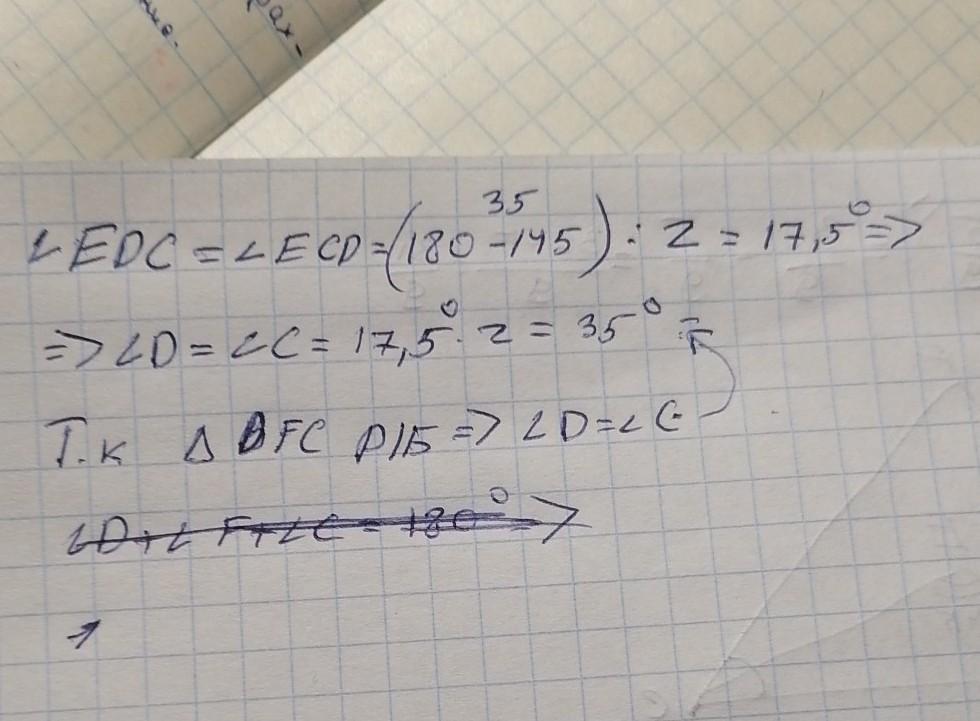 ние.
рах-
35
∠EDC = ∠ECD = (180 - 145) : 2 = 17,5° =>
=> ∠D = ∠C = 17,5° · 2 = 35°
Т.к Δ DFC р/б => ∠D = ∠C
∠D + ∠F + ∠C = 180° =>